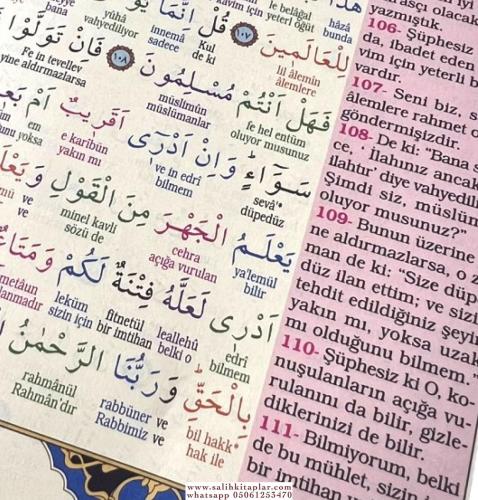 bana
yûhâ
vahyediliyor
innemâ
sadece
Kul
de ki
le belâğal
yeterli öğüt
hâzâ
bunda
لِلْعَالَمِينَ ١٠٧ قُلْ اِنَّمَا
lil âlemin
âlemlere
فَهَلْ اَنْتُمْ مُسْلِمُونَ ١٠٨ فَاِنْ تَوَلَّوْا
fe hel entüm
oluyor musunuz
müslimûn
müslümanlar
Fe in tevellev
yine aldırmazlarsa
سَوَٓاءٍۜ وَاِنْ اَدْرٰٓى اَقَرٖيبٌ اَمْ
sevâ'*
düpedüz
ve in edrî
bilmem
e karîbün
yakın mı
em
yoksa
يَعْلَمُ الْجَهْرَ مِنَ الْقَوْلِ
ya'lemül
bilir
cehra
açığa vurulan
minel kavli
sözü de
ve
ve
اَدْرٰى لَعَلَّهُ فِتْنَةٌ لَكُمْ وَمَتَاعٌ
edrî
bilmem
leallehû
belki o
fitnetül
bir imtihan
leküm
sizin için
ve
بِالْحَقِّۜ وَرَبُّنَا الرَّحْمٰنُ
bil hakk*
hak ile
ve rabbüner
ve Rabbimiz
rahmânül
Rahmân'dır
yazmıştık.
106- Şüphesiz
da, ibadet eden
vim için yeterli b
vardır.
107- Seni biz, s
âlemlere rahmet o
göndermişizdir.
108- De ki: "Bana s
ce, ' İlahınız ancak
ilahtır' diye vahyedili
Şimdi siz, müslüm
oluyor musunuz?"
109- Bunun üzerine
ne aldırmazlarsa, o z
man de ki: "Size düp
düz ilan ettim; ve sizi
tehdit edildiğiniz şeyi
yakın mı, yoksa uzak
mı olduğunu bilmem."
110- Şüphesiz ki O, ko-
nuşulanların açığa vu-
rulanını da bilir, gizle-
diklerinizi de bilir.
111- Bilmiyorum, belki
de bu mühlet, sizin
bir imtihan
www.salihkitaplar.com
whatsapp 05061253470